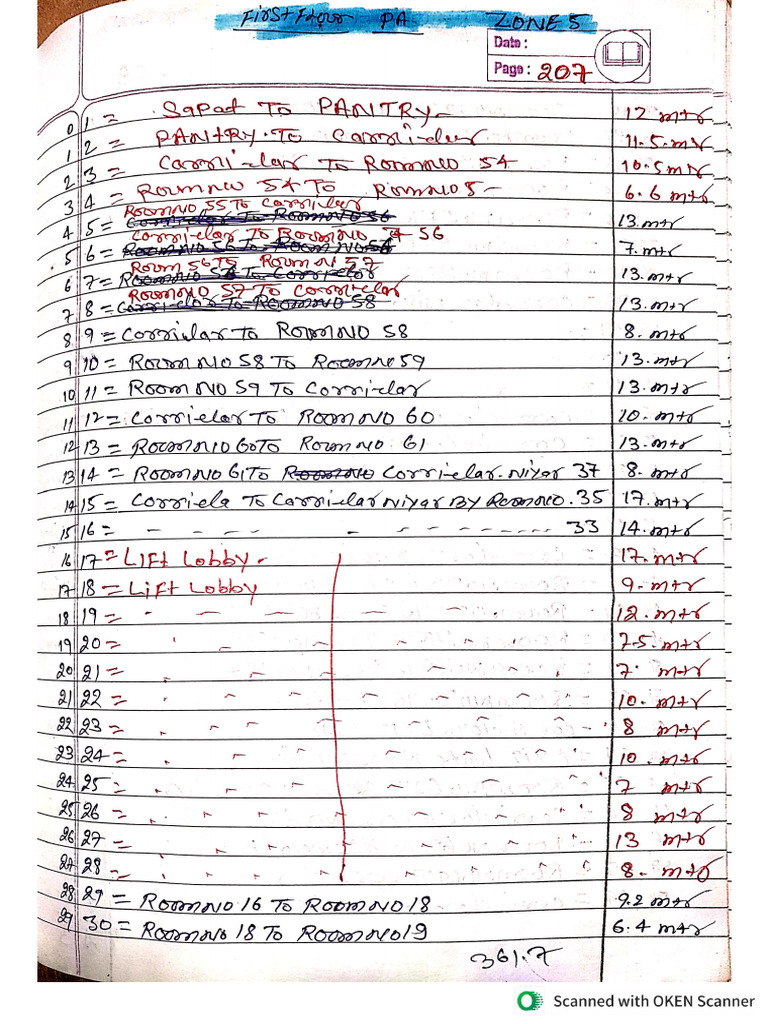 First Floor PA ZONE 5
Date :
Page : 207
0 1 = Sapat To PANTRY - 12 mtr
1 2 = PANTRY. To Carridar 11.5. mtr
2 3 = Carridar To Roomno 54 10.5 mtr
3 4 = Roomno 54 To Romno 5- 6.6 mtr
Room NO 55 To Carridar
4 5 = 13. mtr
Corridar To Room No 56
5 6 = 7. mtr
Room 56 To Room N 57
6 7 = 13. mtr
Room NO 57 To Corridar
7 8 = 13. mtr
8 9 = Corridar To Room NO 58 8. mtr
9 10 = Room NO 58 To Room No 59 13. mtr
10 11 = Room NO 59 To Corridar 13. mtr
11 12 = Corridar To Room NO 60 10. mtr
12 13 = Room NO 60 To Room NO 61 13. mtr
13 14 = Room NO 61 To Corridar. Niyar 37 8. mtr
14 15 = Corrida To Carridar Niyar By Romno. 35 17. mtr
15 16 = - - - - - - - - - - - 33 14. mtr
16 17 = Lift Lobby - 17. mtr
17 18 = Lift Lobby 9. mtr
18 19 = 12. mtr
19 20 = 7.5. mtr
20 21 = 7. mtr
21 22 = 10. mtr
22 23 = 8 mtr
23 24 = 10. mtr
24 25 = 7 mtr
25 26 = 8 mtr
26 27 = 13 mtr
27 28 = 8. mtr
28 29 = Room NO 16 To Room NO 18 9.2 mtr
29 30 = Room No 18 To Room No 19 6.4 mtr
361.7
Scanned with OKEN Scanner